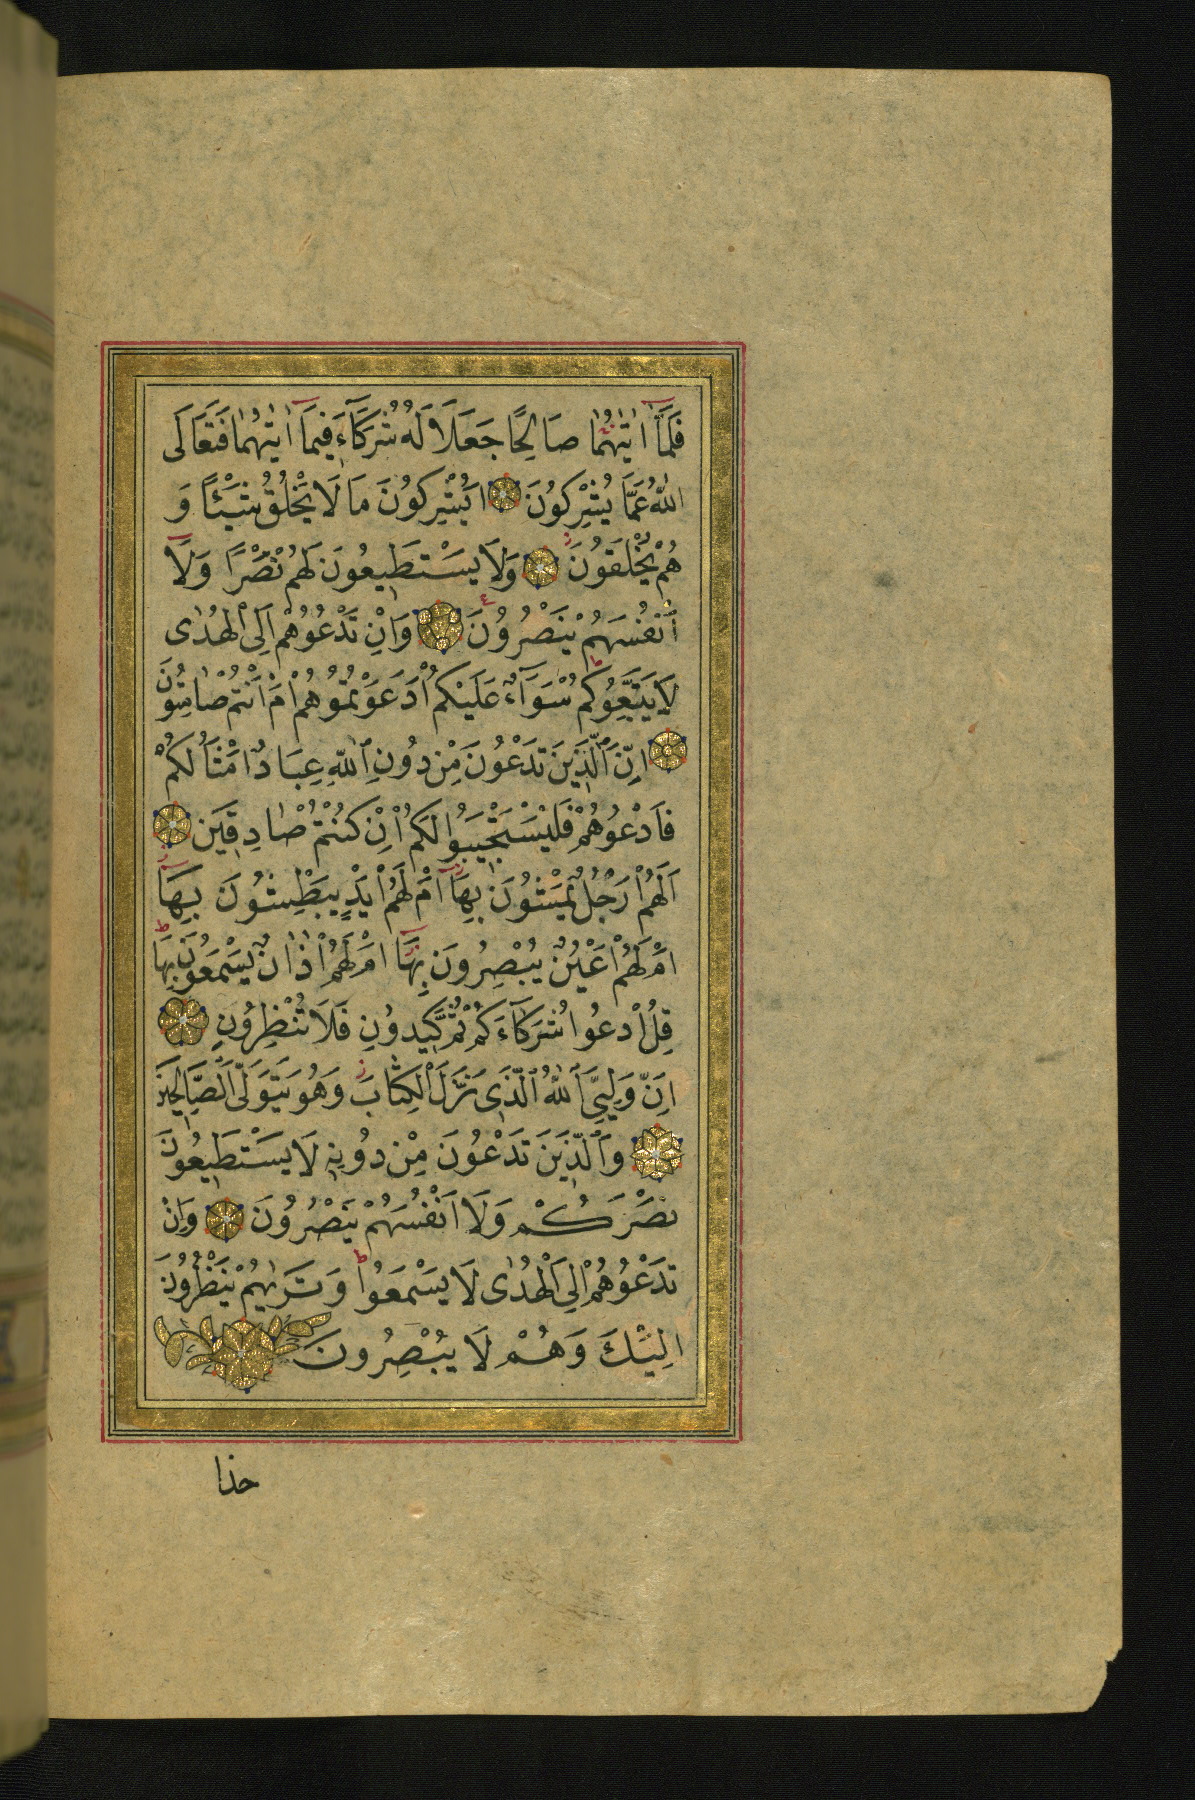 فَلَمَّآ اٰتٰيهُمَا صَالِحًا جَعَلَا لَهُ شُرَكَآءَ فِيمَآ اٰتٰيهُمَا فَتَعَالَى
اللّٰهُ عَمَّا يُشْرِكُونَ اَيُشْرِكُونَ مَا لَا يَخْلُقُ شَيْئًا وَ
هُمْ يُخْلَقُونَ وَلَا يَسْتَطِيعُونَ لَهُمْ نَصْرًا وَلَآ
اَنْفُسَهُمْ يَنْصُرُونَ وَاِنْ تَدْعُوهُمْ اِلَى الْهُدٰى
لَا يَتَّبِعُوكُمْ سَوَآءٌ عَلَيْكُمْ اَدَعَوْتُمُوهُمْ اَمْ اَنْتُمْ صَامِتُونَ
اِنَّ الَّذِينَ تَدْعُونَ مِنْ دُونِ اللّٰهِ عِبَادٌ اَمْثَالُكُمْ
فَادْعُوهُمْ فَلْيَسْتَجِيبُوا لَكُمْ اِنْ كُنْتُمْ صَادِقِينَ
اَلَهُمْ اَرْجُلٌ يَمْشُونَ بِهَآ اَمْ لَهُمْ اَيْدٍ يَبْطِشُونَ بِهَآ
اَمْ لَهُمْ اَعْيُنٌ يُبْصِرُونَ بِهَآ اَمْ لَهُمْ اٰذَانٌ يَسْمَعُونَ بِهَا
قُلِ ادْعُوا شُرَكَآءَكُمْ ثُمَّ كِيدُونِ فَلَا تُنْظِرُونِ
اِنَّ وَلِيِّيَ اللّٰهُ الَّذِى نَزَّلَ الْكِتَابَ وَهُوَ يَتَوَلَّى الصَّالِحِينَ
وَالَّذِينَ تَدْعُونَ مِنْ دُونِهٖ لَا يَسْتَطِيعُونَ
نَصْرَكُمْ وَلَا اَنْفُسَهُمْ يَنْصُرُونَ وَاِنْ
تَدْعُوهُمْ اِلَى الْهُدٰى لَا يَسْمَعُوا وَتَرٰيهُمْ يَنْظُرُونَ
اِلَيْكَ وَهُمْ لَا يُبْصِرُونَ
خذا